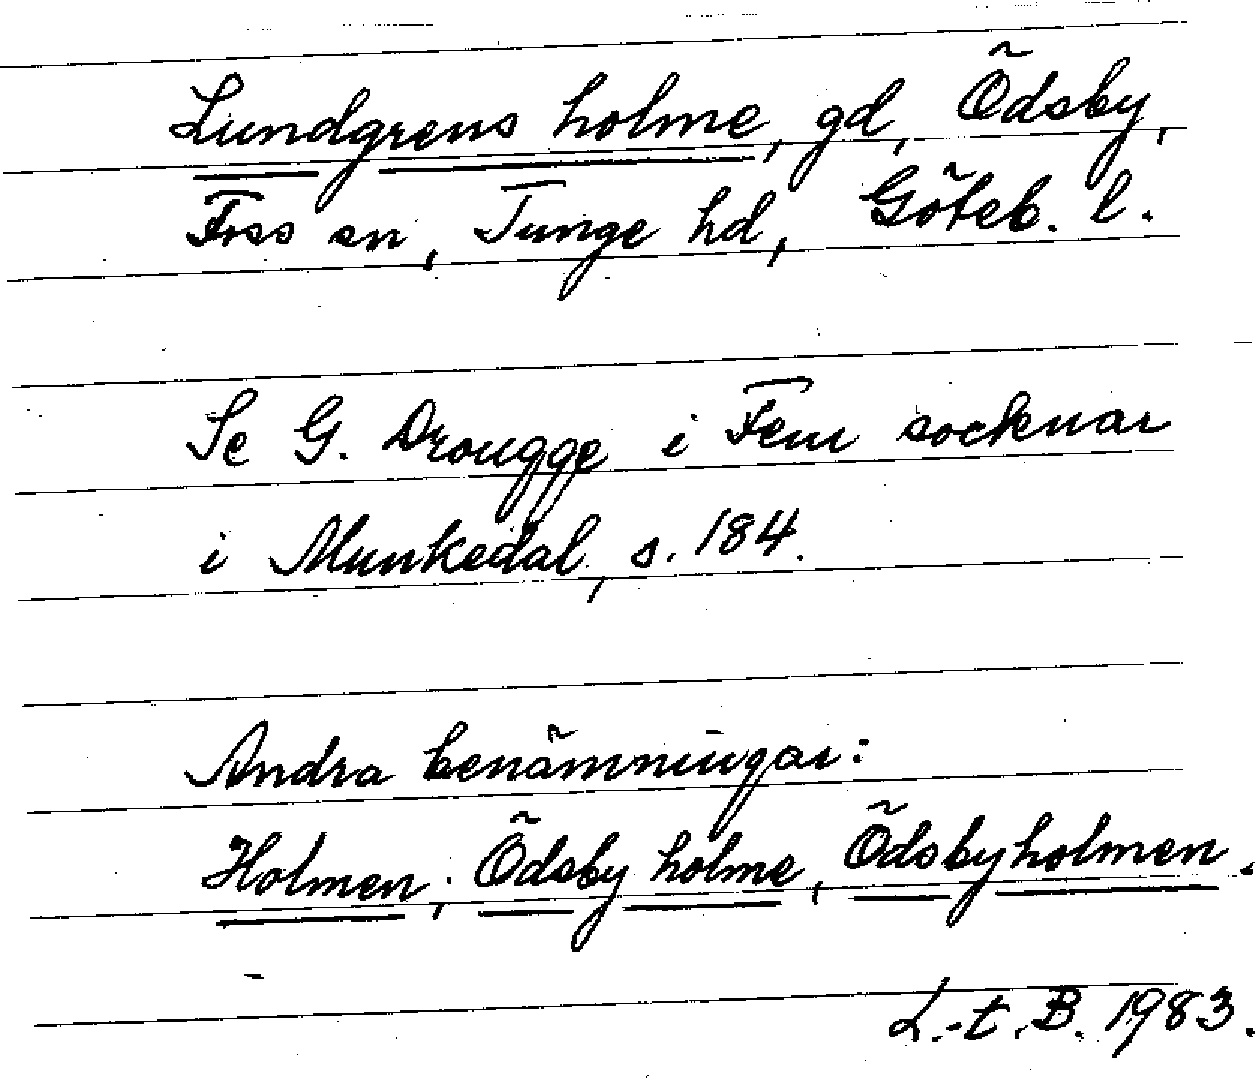 Lundgrens holme, gd, Ödsby,
Foss sn, Tunge hd, Göteb. l.
Se G. Drougge i Fem socknar
i Munkedal, s. 184.
Andra benämningar:
Holmen, Ödsby holme, Ödsbyholmen.
L.-t. B. 1983.